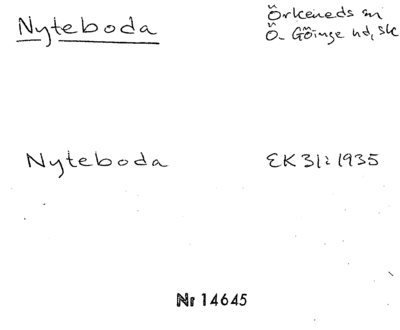 Nyteboda
Örkeneds sn
Ö. Göinge hd, Sk
Nyteboda
EK 31: 1935
Nr 14645